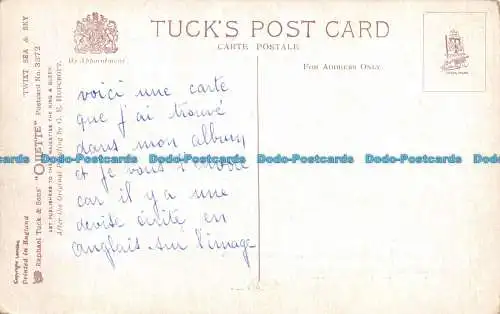 TUCK'S POST CARD
CARTE POSTALE
By Appointment
FOR ADDRESS ONLY.
voici une carte
que j'ai trouvé
dans mon album
et je vous l'envoie
car il y a une
devise écrite en
anglais sur l'image
"TWIXT SEA & SKY
Raphael Tuck & Sons' "OILETTE" Postcard No. 3372
ART PUBLISHERS TO THEIR MAJESTIES THE KING & QUEEN
After the Original Painting by G. E. HOPCROFT.
Copyright London
Printed in England
Postcards Postcards Postcards Postcards Postcards Postcards